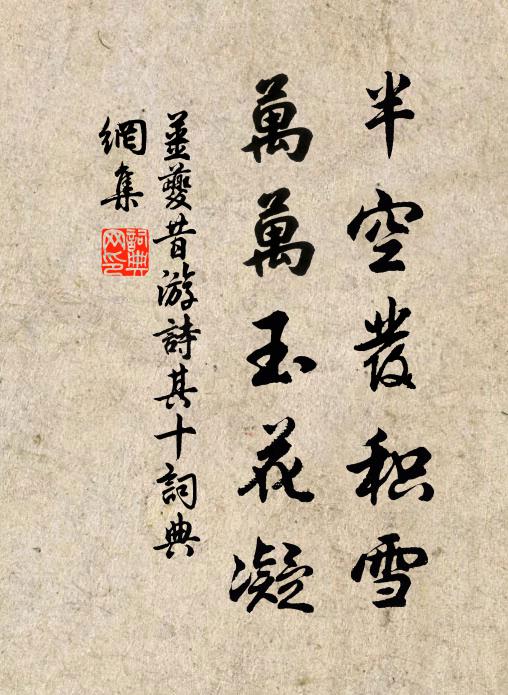 半空發积雪
萬萬玉花凝
姜夔昔游詩其十詞典
網集
詞典网印